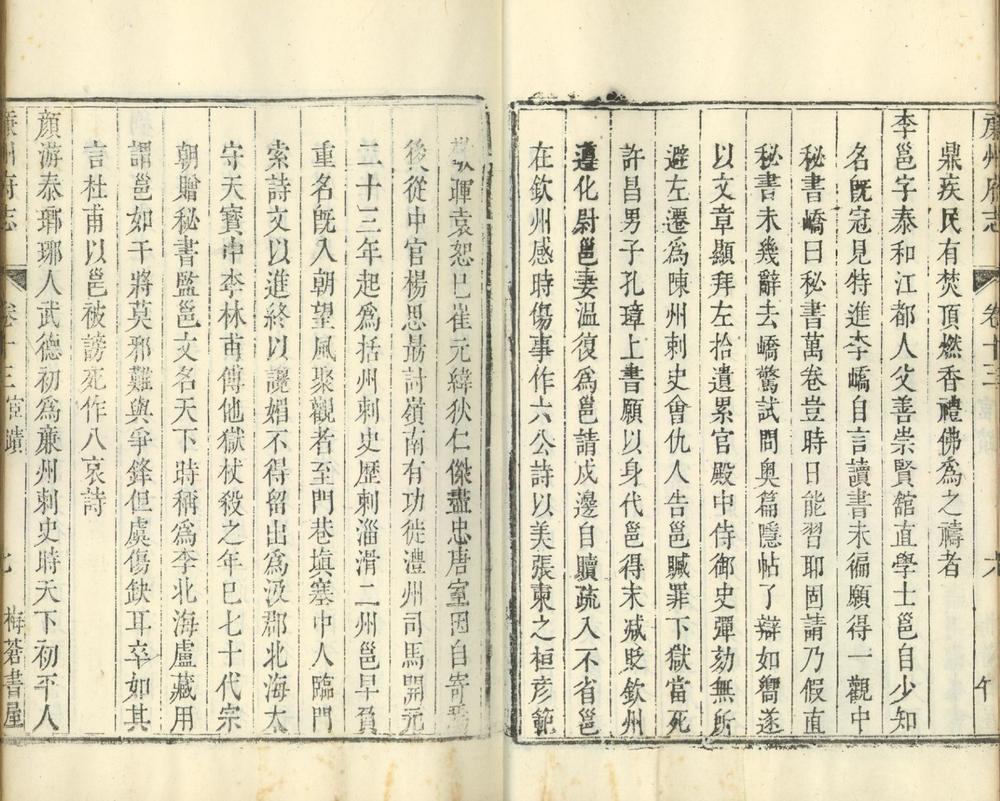 廉州府志 卷十三 六 午
鼎疾民有焚頂燃香禮佛爲之禱者
李邕字泰和江都人父善崇賢舘直學士邕自少知
名旣冠見特進李嶠自言讀書未徧願得一觀中
秘書嶠曰秘書萬卷豈時日能習耶固請乃假直
秘書未幾辭去嶠驚試問奥篇隱帖了辯如嚮遂
以文章顯拜左拾遺累官殿中侍御史彈劾無所
避左遷爲陳州刺史會仇人告邕贓罪下獄當死
許昌男子孔璋上書願以身代邕得末减貶欽州
遵化尉邕妻溫復爲邕請戍邊自贖疏入不省邕
在欽州感時傷事作六公詩以美張柬之桓彦範
敬暉袁恕已崔元緯狄仁傑盡忠唐室因自寄焉
後從中官楊思勗討嶺南有功徙澧州司馬開元
二十三年起爲括州刺史歷刺淄滑二州邕早負
重名旣入朝望風聚觀者至門巷塡塞中人臨門
索詩文以進終以讒媢不得留出爲汲郡北海太
守天寶中李林甫傅他獄杖殺之年已七十代宗
朝贈秘書監邕文名天下時稱爲李北海盧藏用
謂邕如干將莫邪難與爭鋒但虞傷缺耳卒如其
言杜甫以邕被謗死作八哀詩
顏游泰瑯琊人武德初爲廉州刺史時天下初平人
廉州府志 卷十三 宦蹟 七 梅菴書屋